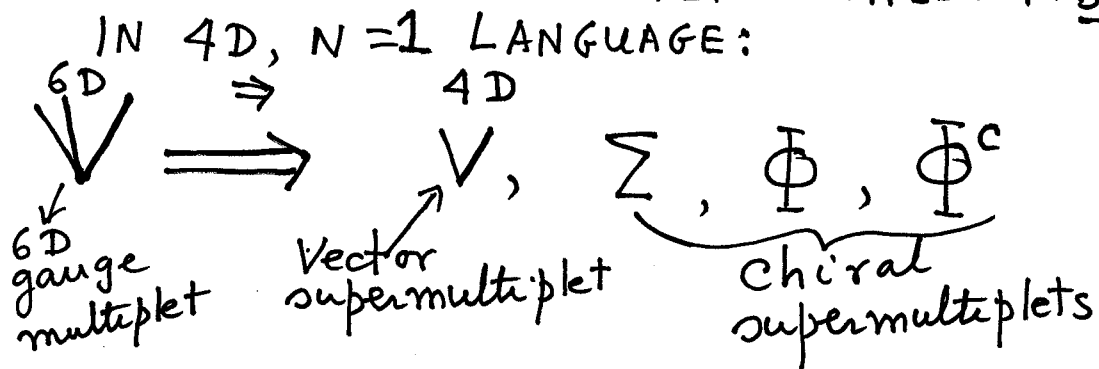 IN 4D, N=1 LANGUAGE:
6D ⇒ 4D
V ⟹ V, Σ, Φ, Φᶜ
6D gauge multiplet
Vector supermultiplet
chiral supermultiplets